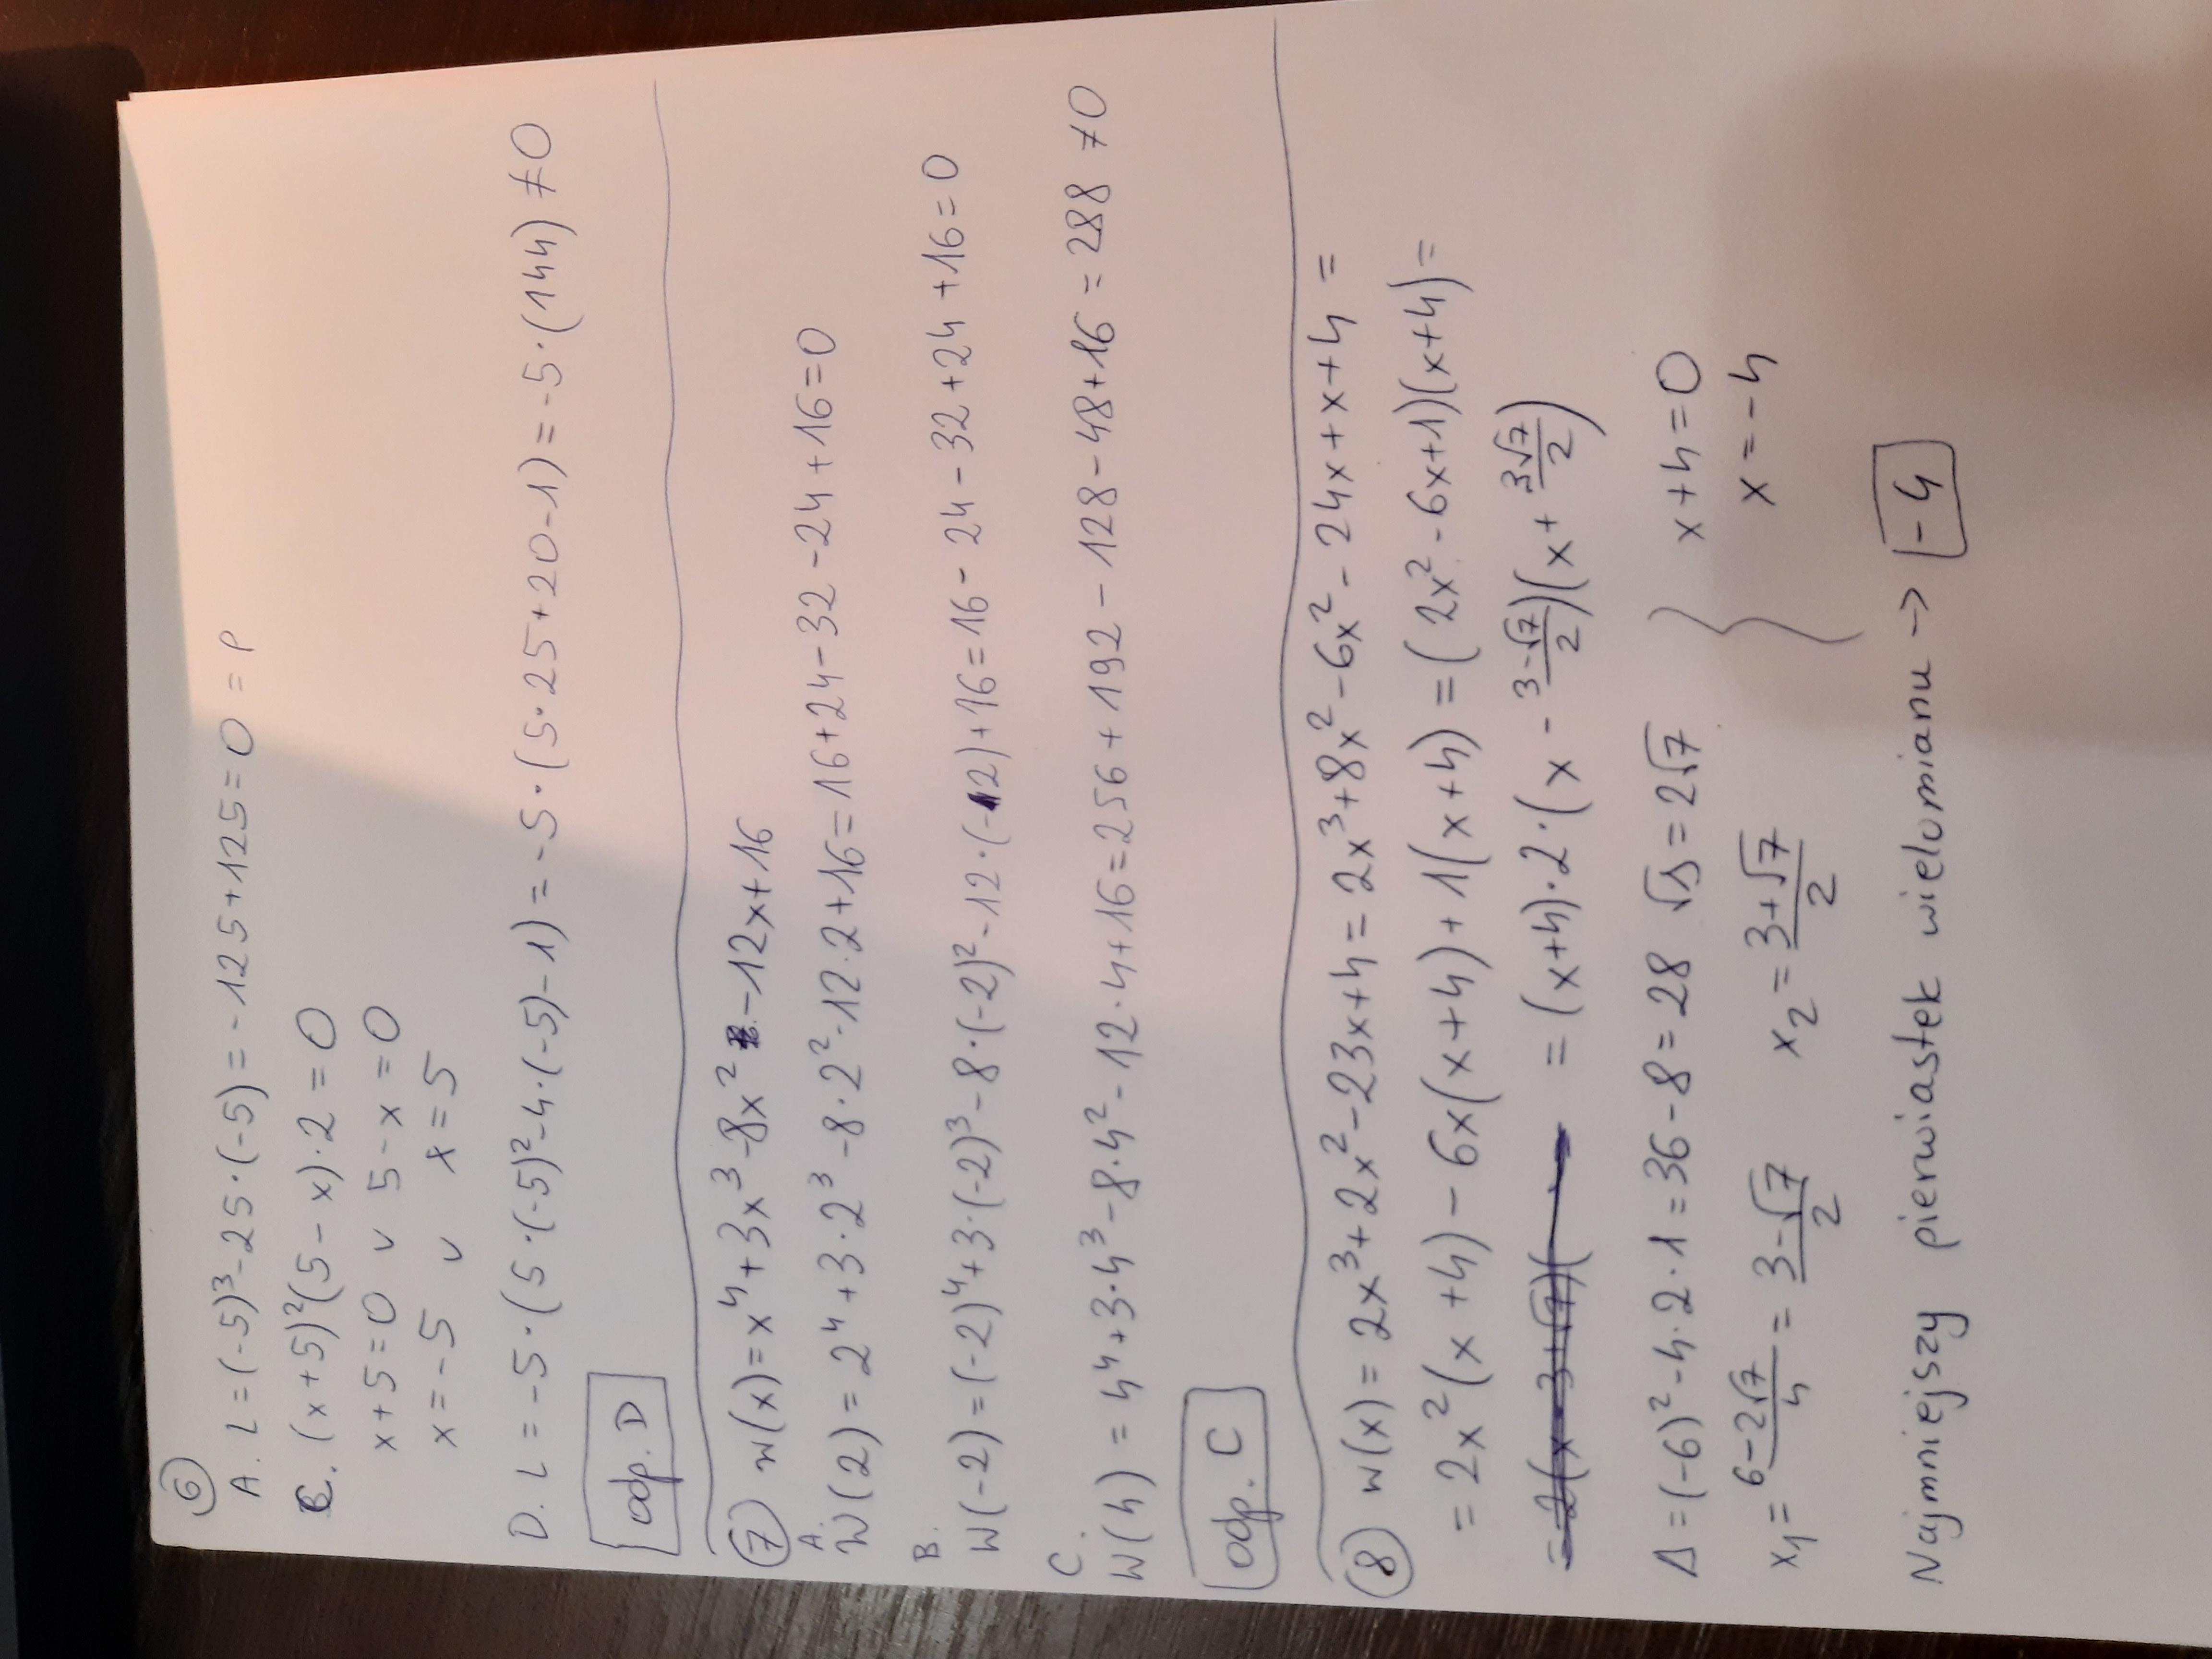 6
A. L = (-5)³ - 25·(-5) = -125 + 125 = 0 = P
C. (x+5)²(5-x)·2 = 0
x+5=0 v 5-x=0
x=-5 v x=5
D. L = -5·(5·(-5)²-4·(-5)-1) = -5·(5·25+20-1) = -5·(144) ≠ 0
odp. D
7 w(x) = x⁴ + 3x³ - 8x² - 12x + 16
A.
W(2) = 2⁴ + 3·2³ - 8·2² - 12·2 + 16 = 16 + 24 - 32 - 24 + 16 = 0
B.
W(-2) = (-2)⁴ + 3·(-2)³ - 8·(-2)² - 12·(-2) + 16 = 16 - 24 - 32 + 24 + 16 = 0
C.
W(4) = 4⁴ + 3·4³ - 8·4² - 12·4 + 16 = 256 + 192 - 128 - 48 + 16 = 288 ≠ 0
odp. C
8 w(x) = 2x³ + 2x² - 23x + 4 = 2x³ + 8x² - 6x² - 24x + x + 4 =
= 2x²(x+4) - 6x(x+4) + 1(x+4) = (2x² - 6x + 1)(x+4) =
= (x+4)·2·(x - \frac{3-√7}{2})(x + \frac{3√7}{2})
Δ = (-6)² - 4·2·1 = 36 - 8 = 28 √Δ = 2√7 x+4=0
x₁ = \frac{6-2√7}{4} = \frac{3-√7}{2} x₂ = \frac{3+√7}{2} x=-4
Najmniejszy pierwiastek wielomianu → -4